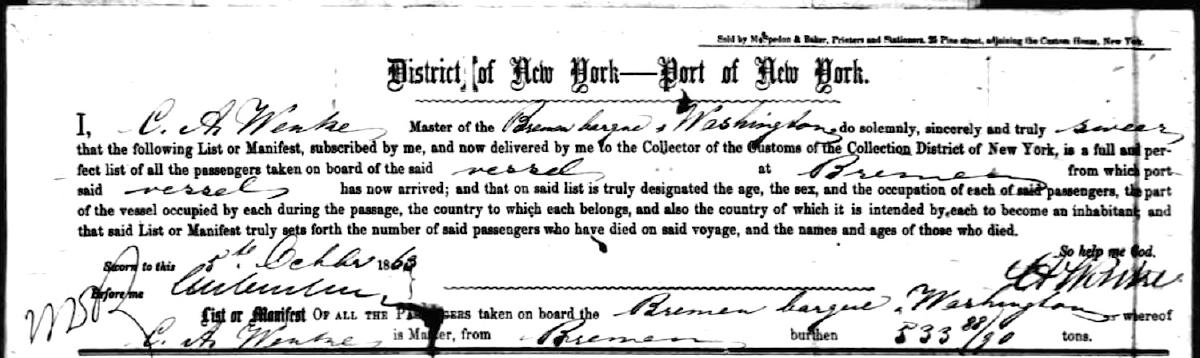 Sold by McSpedon & Baker, Printers and Stationers, 25 Pine street, adjoining the Custom House, New York.
District of New York—Port of New York.
I, C. A. Wenke Master of the Bremen barque "Washington" do solemnly, sincerely and truly swear
that the following List or Manifest, subscribed by me, and now delivered by me to the Collector of the Customs of the Collection District of New York, is a full and per-
fect list of all the passengers taken on board of the said vessel at Bremen from which port
said vessel has now arrived; and that on said list is truly designated the age, the sex, and the occupation of each of said passengers, the part
of the vessel occupied by each during the passage, the country to which each belongs, and also the country of which it is intended by each to become an inhabitant; and
that said List or Manifest truly sets forth the number of said passengers who have died on said voyage, and the names and ages of those who died.
So help me God.
Sworn to this 5th October 1863
Before me
List or Manifest OF ALL THE PASSENGERS taken on board the Bremen barque "Washington" whereof
C. A. Wenke is Master, from Bremen burthen 533 88/90 tons.